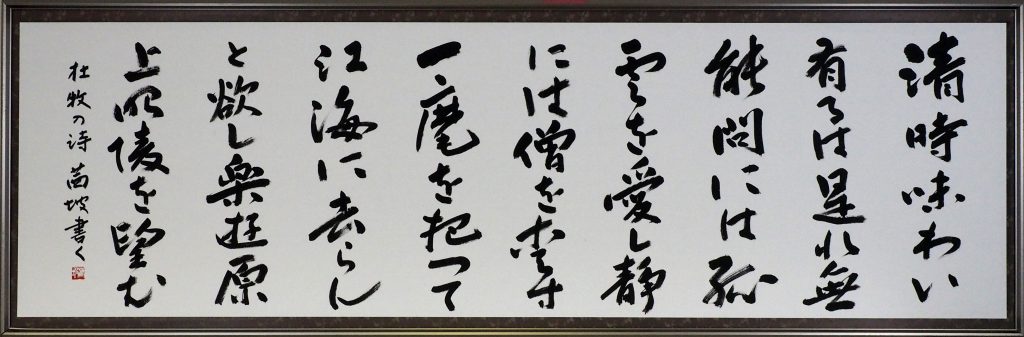 清時味わい
有るは是れ無
能間には孤
雲を愛し静
には僧を愛す
一麾を把って
江海に去らん
と欲し楽遊原
上昭陵を望む
杜牧の詩 茜坡書く